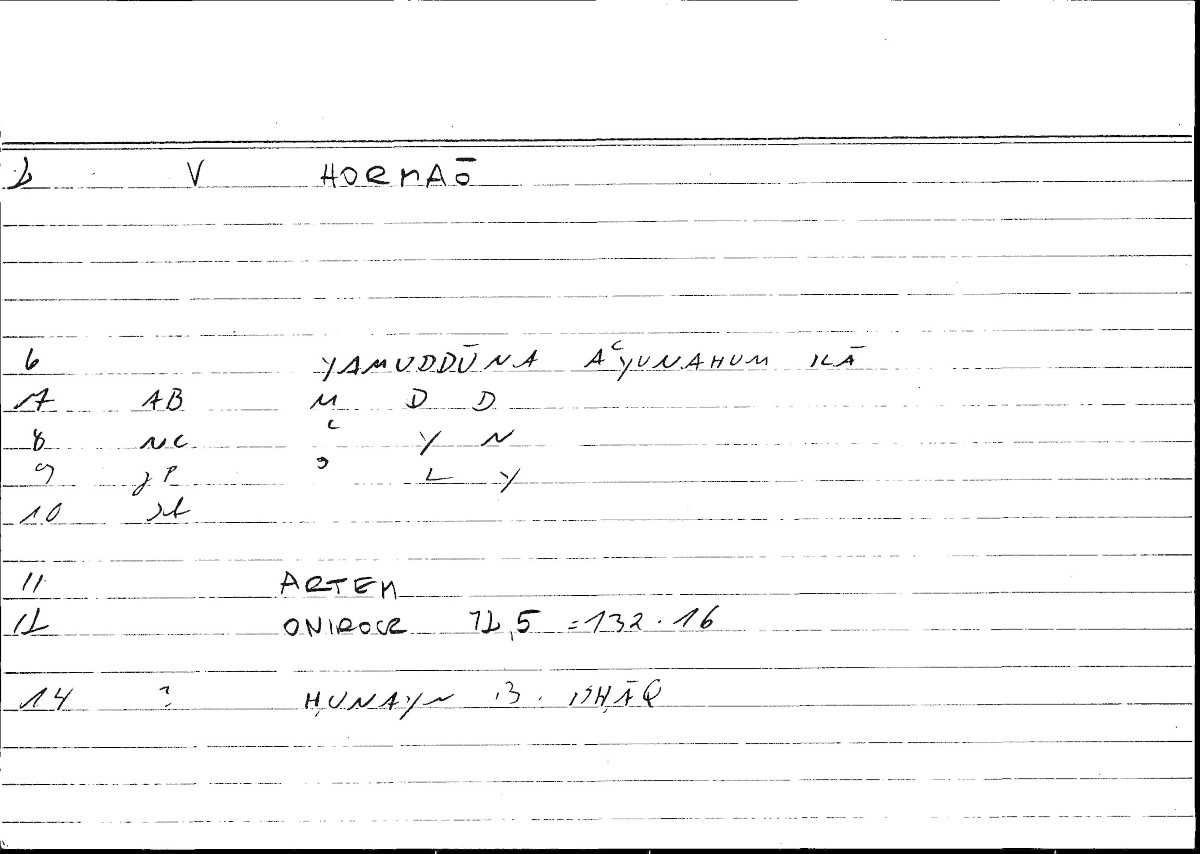 1 V HORMAŌ
6 YAMUDDŪNA AʿYUNAHUM ILĀ
7 AB M D D
8 NC ʿ Y N
9 JP ʾ L Y
10 st
11 ARTEM
12 ONIROCR 12,5 = 132.16
14 ? ḤUNAYN B. ISḤĀQ